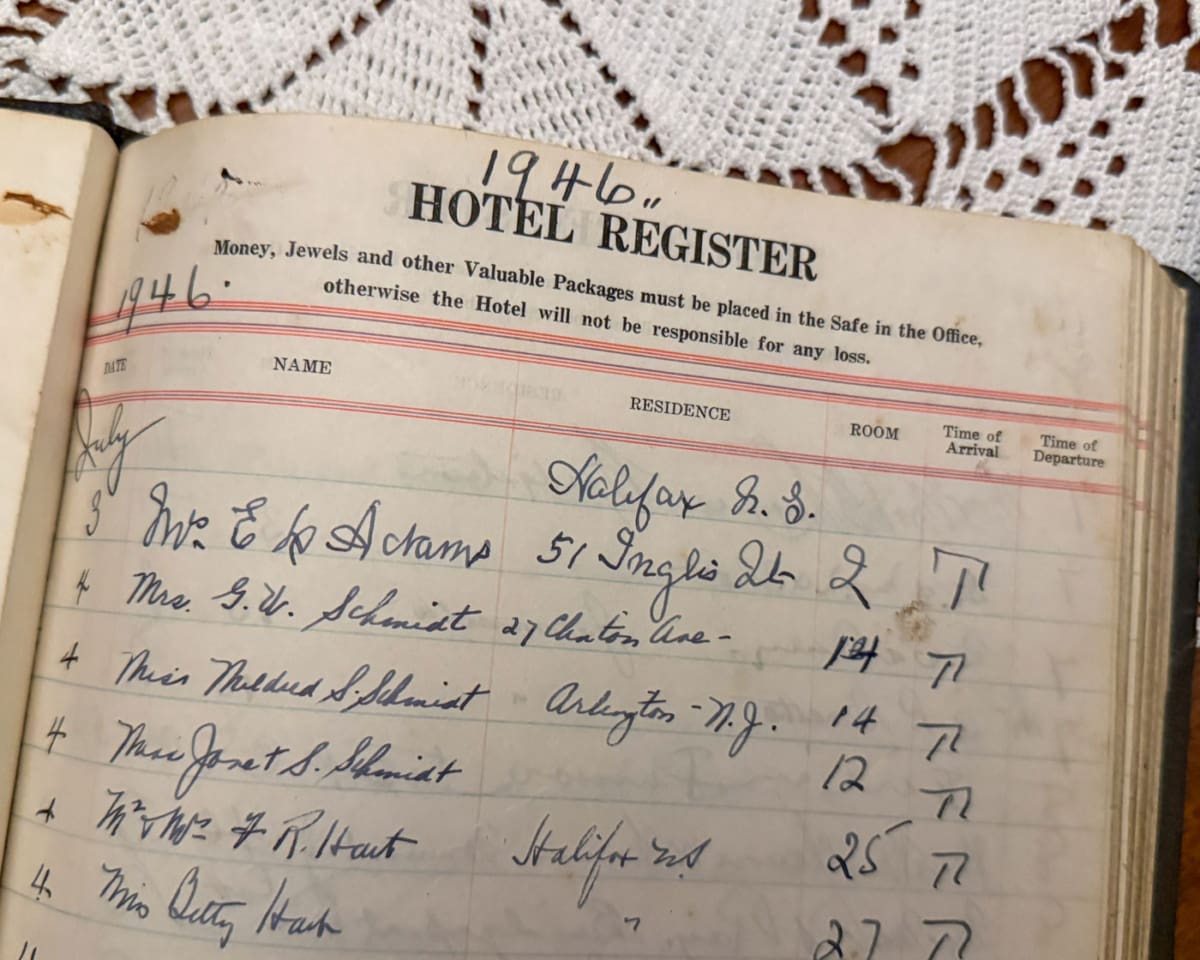 1946"
HOTEL REGISTER
Money, Jewels and other Valuable Packages must be placed in the Safe in the Office,
otherwise the Hotel will not be responsible for any loss.
1946.
DATE NAME RESIDENCE ROOM Time of Arrival Time of Departure
July
Halifax N. S.
3 Mrs. E Adams 51 Inglis St 2 T
4 Mrs. G. W. Schmidt 27 Clinton Ave - 14 T
4 Miss Mildred S. Schmidt Arlington - N.J. 14 T
4 Miss Janet S. Schmidt 12 T
4 Mr & Mrs F R. Hart Halifax NS 25 T
4 Miss Betty Hart " 27 T